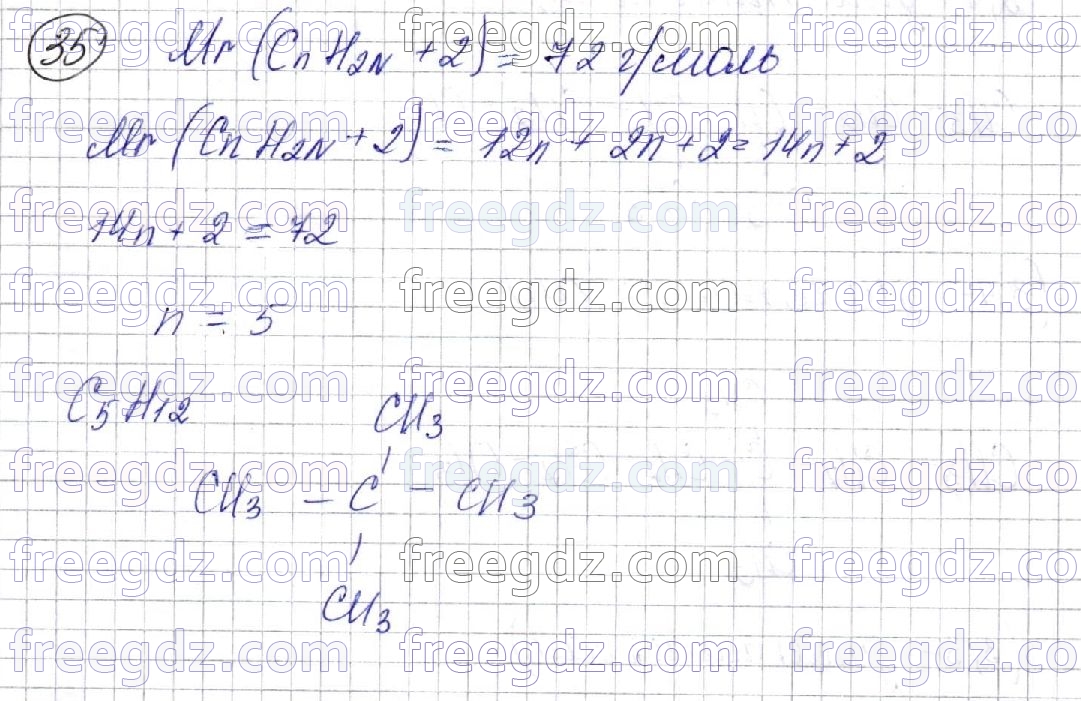 35 Mr (CnH2n + 2) = 72 г/моль
Mr (CnH2n + 2) = 12n + 2n + 2 = 14n + 2
14n + 2 = 72
n = 5
C5H12
CH3
CH3 - C - CH3
CH3
freegdz.com freegdz.com freegdz.co
freegdz.com freegdz.com freegdz.co
freegdz.com freegdz.com freegdz.co
freegdz.com freegdz.com freegdz.co
freegdz.com freegdz.com freegdz.co
freegdz.com freegdz.com freegdz.co
freegdz.com freegdz.com freegdz.co
freegdz.com freegdz.com freegdz.co